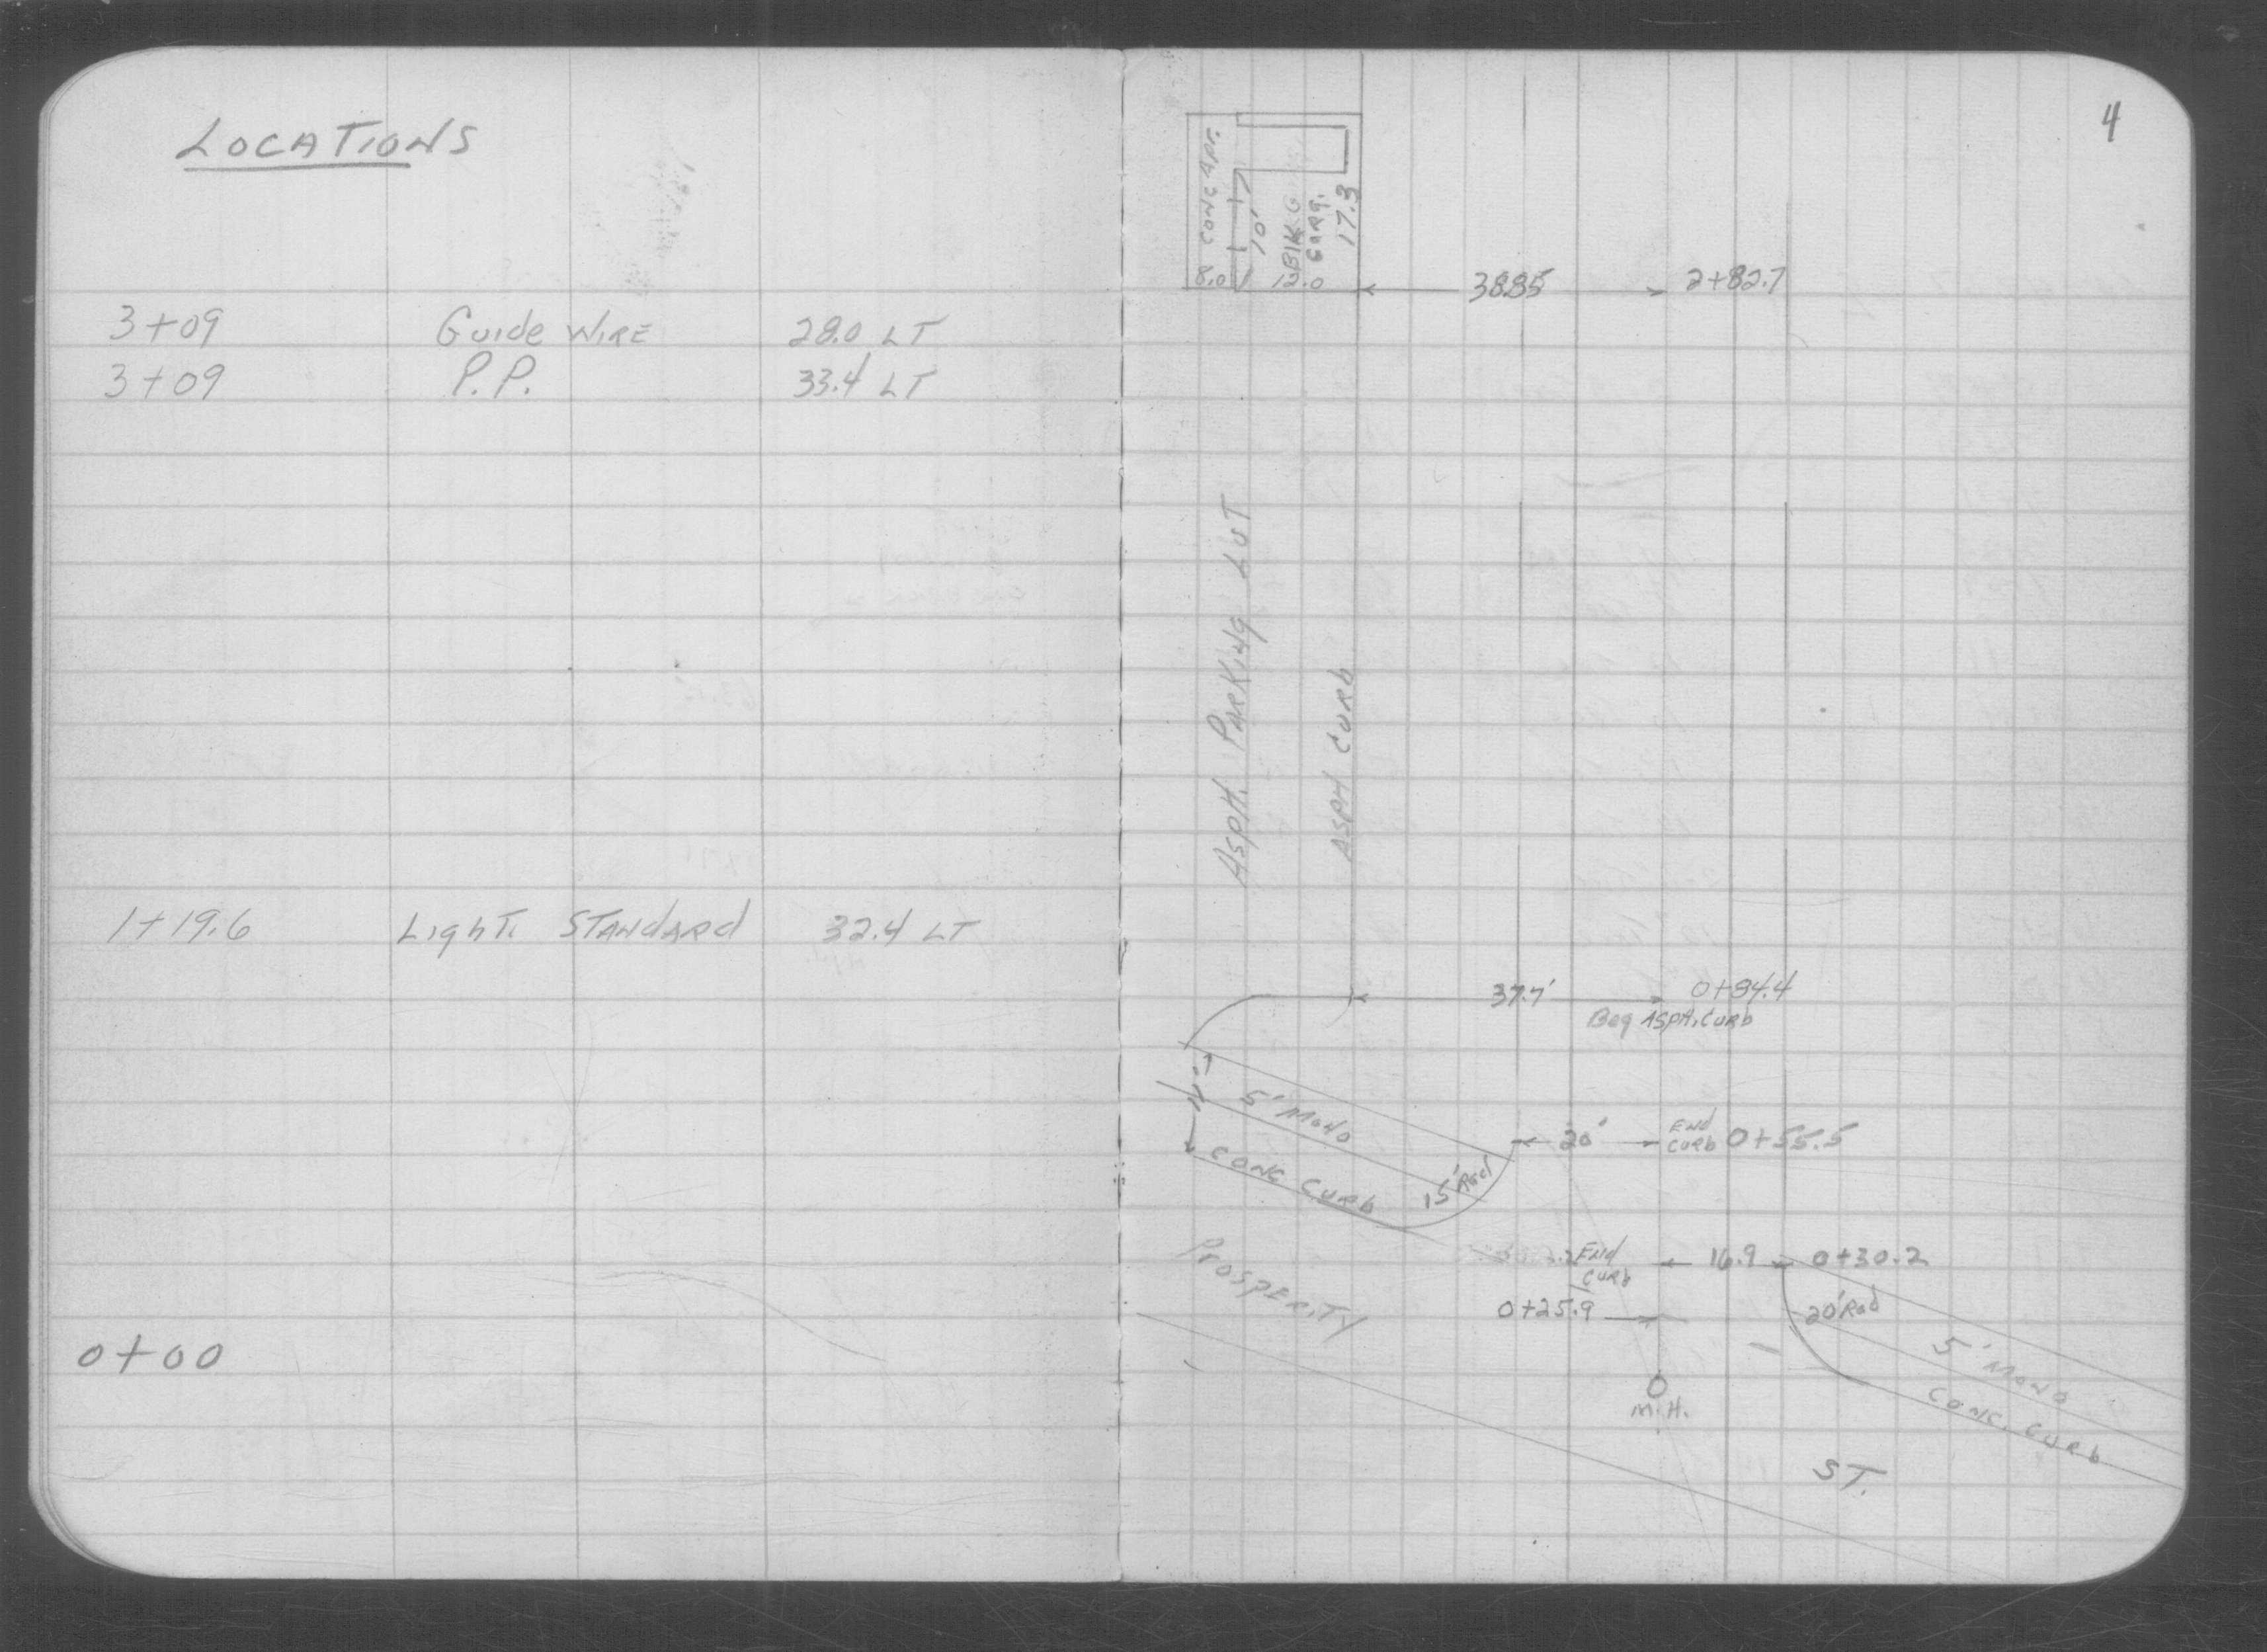 LOCATIONS
3+09 Guide WIRE 28.0 LT
3+09 P.P. 33.4 LT
1+19.6 LighT. STANdARd 32.4 LT
0+00
4
CONC APR.
10'
BlK G
GARG.
17.3
8.0 12.0
38.85 2+82.7
ASPH. PARKiNg LOT
ASPH CURb
37.7' 0+84.4
Beg ASPH. CURb
5' MONO
CONC CURb
15' Rad
20' ENd
CURb 0+55.5
PROSPERiTY
ENd
CURb
16.9 0+30.2
0+25.9
20' Rad
5' MONO
CONC. CURb
M.H.
ST.